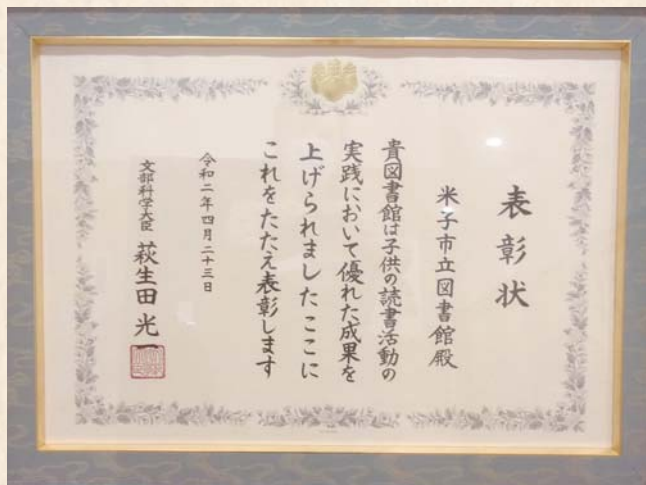 表彰状
米子市立図書館殿
貴図書館は子供の読書活動の
実践において優れた成果を
上げられましたここに
これをたたえ表彰します
令和二年四月二十三日
文部科学大臣 萩生田光一